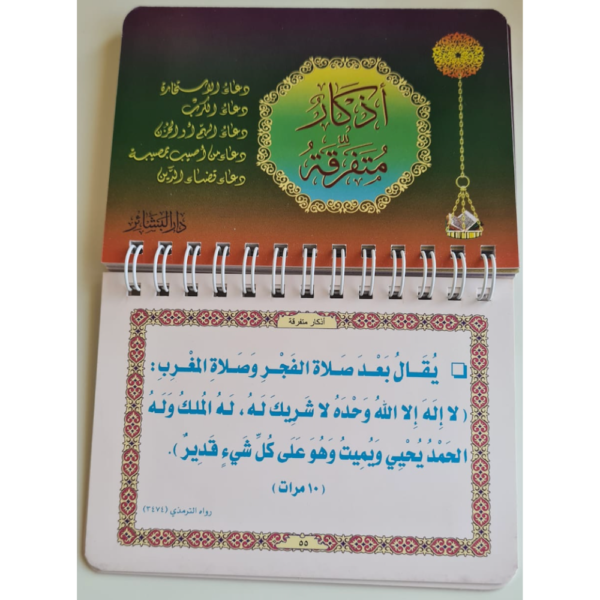 أذكار
متفرقة
دعاء الاستخارة
دعاء الكرب
دعاء الهم أو الحزن
دعاء من أصيب بمصيبة
دعاء قضاء الدين
دار البشائر
أذكار متفرقة
يُقَالُ بَعْدَ صَلاة الفَجْرِ وَصَلاةِ المَغْرِبِ :
( لا إِلَهَ إلا اللهُ وَحْدَهُ لا شَرِيكَ لَهُ، لَهُ المُلكُ وَلَهُ
الحَمْدُ يُحْيِي وَيُمِيتُ وَهُوَ عَلَى كُلِّ شَيْءٍ قَدِيرٌ ).
(١٠ مرات)
رواه الترمذي (٣٤٧٤)
٥٥